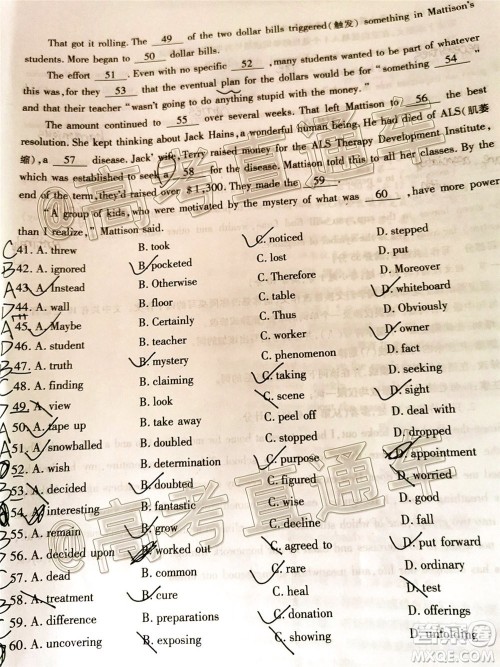 That got it rolling. The 49 of the two dollar bills triggered(触发) something in Mattison's
students. More began to 50 dollar bills.
The effort 51 . Even with no specific 52 , many students wanted to be part of whatever
this was, for they 53 that the eventual plan for the dollars would be for “something 54 ”
and that their teacher “wasn't going to do anything stupid with the money.”
The amount continued to 55 over several weeks. That left Mattison to 56 the best
resolution. She kept thinking about Jack Hains, a wonderful human being. He had died of ALS(肌萎
缩), a 57 disease. Jack' wife, Terry raised money for the ALS Therapy Development Institute,
which was established to seek a 58 for the disease. Mattison told this to all her classes. By the
end of the term, they'd raised over $1,300. They made the 59 .
“A group of kids, who were motivated by the mystery of what was 60 , have more power
than I realize,” Mattison said.
C 41. A. threw B. took C. noticed D. stepped
B 42. A. ignored B. pocketed C. lost D. put
A 43. A. Instead B. Otherwise C. Therefore D. Moreover
D 44. A. wall B. floor C. table D. whiteboard
A 45. A. Maybe B. Certainly C. Thus D. Obviously
D 46. A. student B. teacher C. worker D. owner
B 47. A. truth B. mystery C. phenomenon D. fact
C 48. A. finding B. claiming C. taking D. seeking
D 49. A. view B. look C. scene D. sight
A 50. A. tape up B. take away C. peel off D. deal with
A 51. A. snowballed B. doubled C. stopped D. dropped
52. A. wish B. determination C. purpose D. appointment
B 53. A. decided B. doubted C. figured D. worried
54. A. interesting B. fantastic C. wise D. good
B 55. A. remain B. grow C. decline D. fall
56. A. decided upon B. worked out C. agreed to D. put forward
57. A. dead B. common C. rare D. ordinary
B 58. A. treatment B. cure C. heal D. test
C 59. A. difference B. preparations C. donation D. offerings
60. A. uncovering B. exposing C. showing D. unfolding
@高考直通车
@高考直通车
MXQE.COM